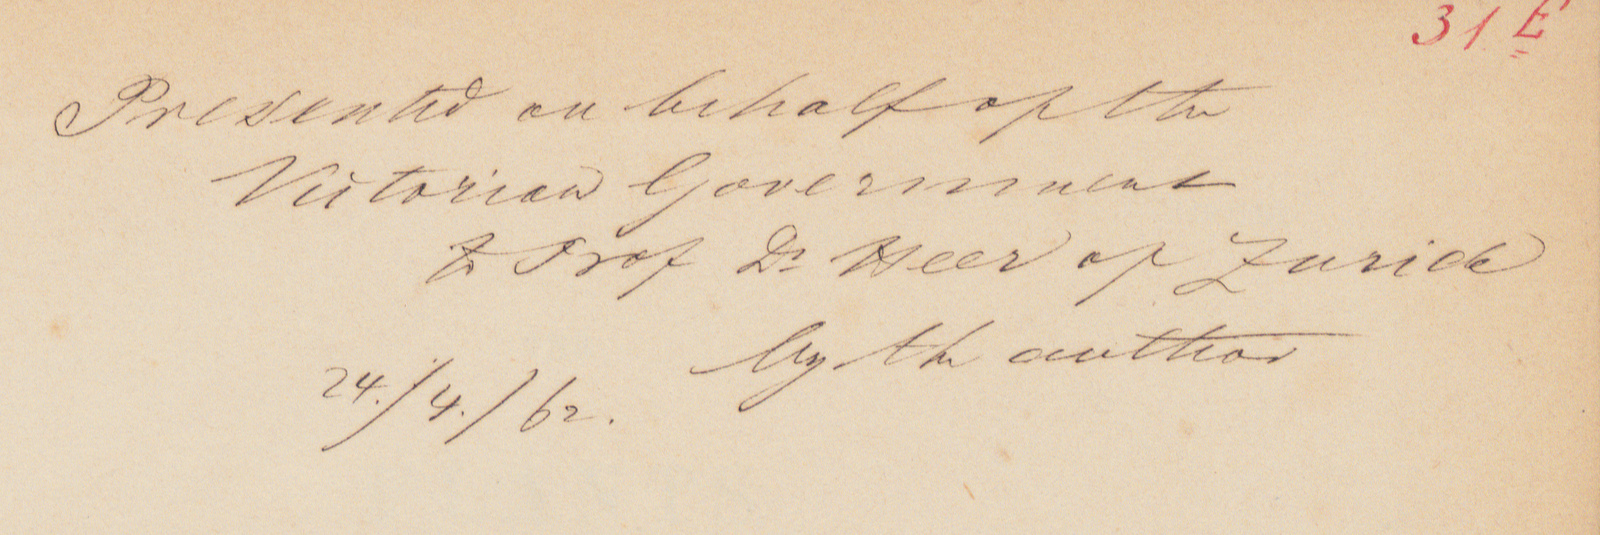 31 E
Presented on behalf of the
Victorian Government
to Prof Dr Heer of Zurich
by the author
24./4./62.